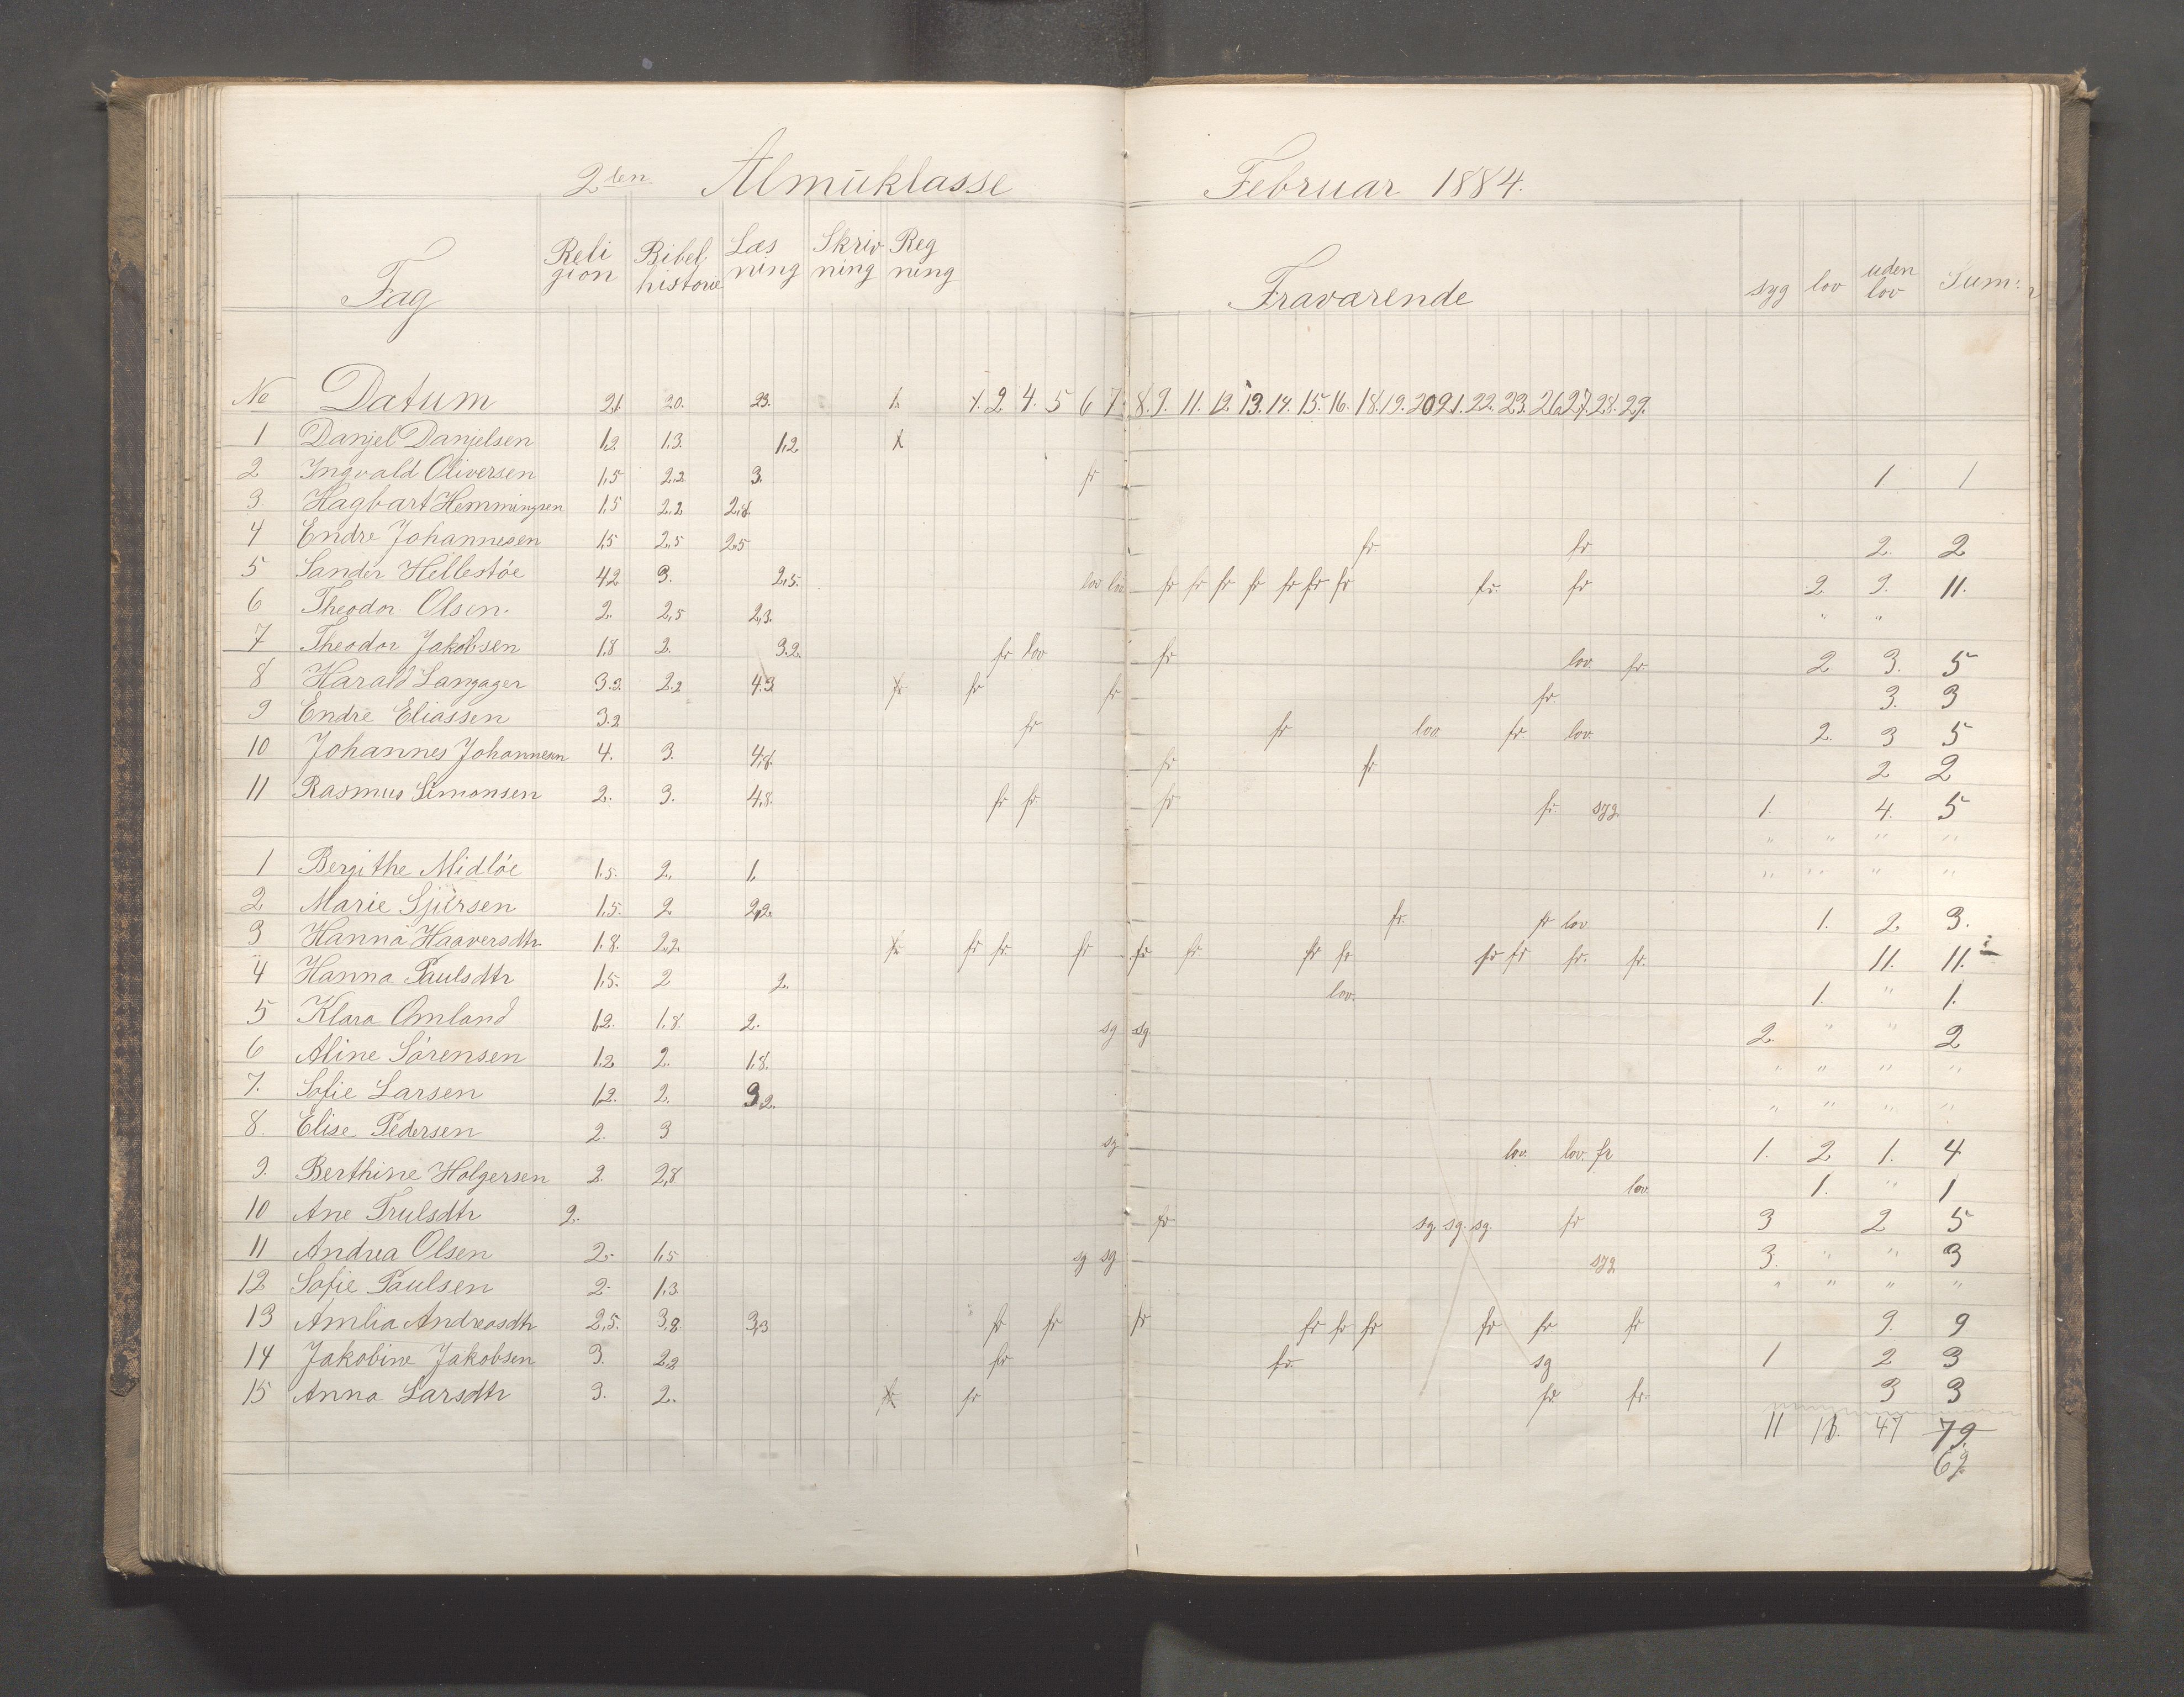 2den Almuklasse Februar 1884.
Fag Religion Bibelhistorie Læsning Skrivning Regning Fraværende syg lov uden lov Sum:
No Datum 21. 20. 23. 1. 1. 2. 4. 5 6 7. 8. 9. 11. 12. 13. 14. 15. 16. 18. 19. 20 21. 22. 23. 26. 27. 28. 29.
1 Danjel Danjelsen 1,2 1,3. 1,2
2 Ingvald Oliversen 1,5 2,2. 3. fr 1 1
3 Hagbart Hemmingsen 1,5 2,2 2,8.
4 Endre Johannesen 1,5 2,5 2,5 fr fr 2. 2
5 Sander Hellestøe 4,2 3. 2,5. lov lov fr fr fr fr fr fr fr fr. fr 2 9. 11.
6 Theodor Olsen. 2. 2,5 2,3. " "
7 Theodor Jakobsen 1,8 2. 3.2. fr lov fr lov. fr 2 3. 5
8 Harald Langager 3.2. 2.2 4.3 fr fr fr fr. 3. 3
9 Endre Eliassen 3.2 fr fr lov fr. lov. 2. 3 5
10 Johannes Johannesen 4. 3. 4,8. fr fr 2 2
11 Rasmus Simonsen 2. 3. 4,8. fr fr fr fr. syg. 1. 4. 5
" " " "
1 Bergithe Midløe 1.5. 2. 1. " " " "
2 Marie Sjursen 1,5. 2 2,2. fr. fr lov 1. 2 3.
3 Hanna Haaversdtr 1.8. 2,2. fr fr fr fr fr fr fr fr fr fr fr. fr. 11. 11.
4 Hanna Paulsdtr 1,5. 2 2. lov. 1. " 1.
5 Klara Omland 1,2. 1,8. 2. sg sg. 2. " " 2
6 Aline Sørensen 1,2 2. 1,8. " " " "
7. Sofie Larsen 1,2. 2. 3,2. " " " "
8. Elise Pedersen 2. 3 sg lov. lov. fr 1. 2 1. 4
9. Berthine Holgersen 2. 2,8 lov. 1. " 1
10 Ane Trulsdtr 2. fr sg. sg. sg. fr 3 2 5
11 Andrea Olsen 2. 1,5 sg sg. syg 3. " " 3
12 Sofie Paulsen 2. 1,3 " " " "
13 Amlia Andreasdtr 2,5. 3,8. 3,3 fr fr fr fr fr fr fr fr fr 9. 9
14 Jakobine Jakobsen 3. 2,2 fr fr. sg 1 2 3
15 Anna Larsdtr 3. 2. fr fr fr. fr. 3 3
11 47 79.
69.